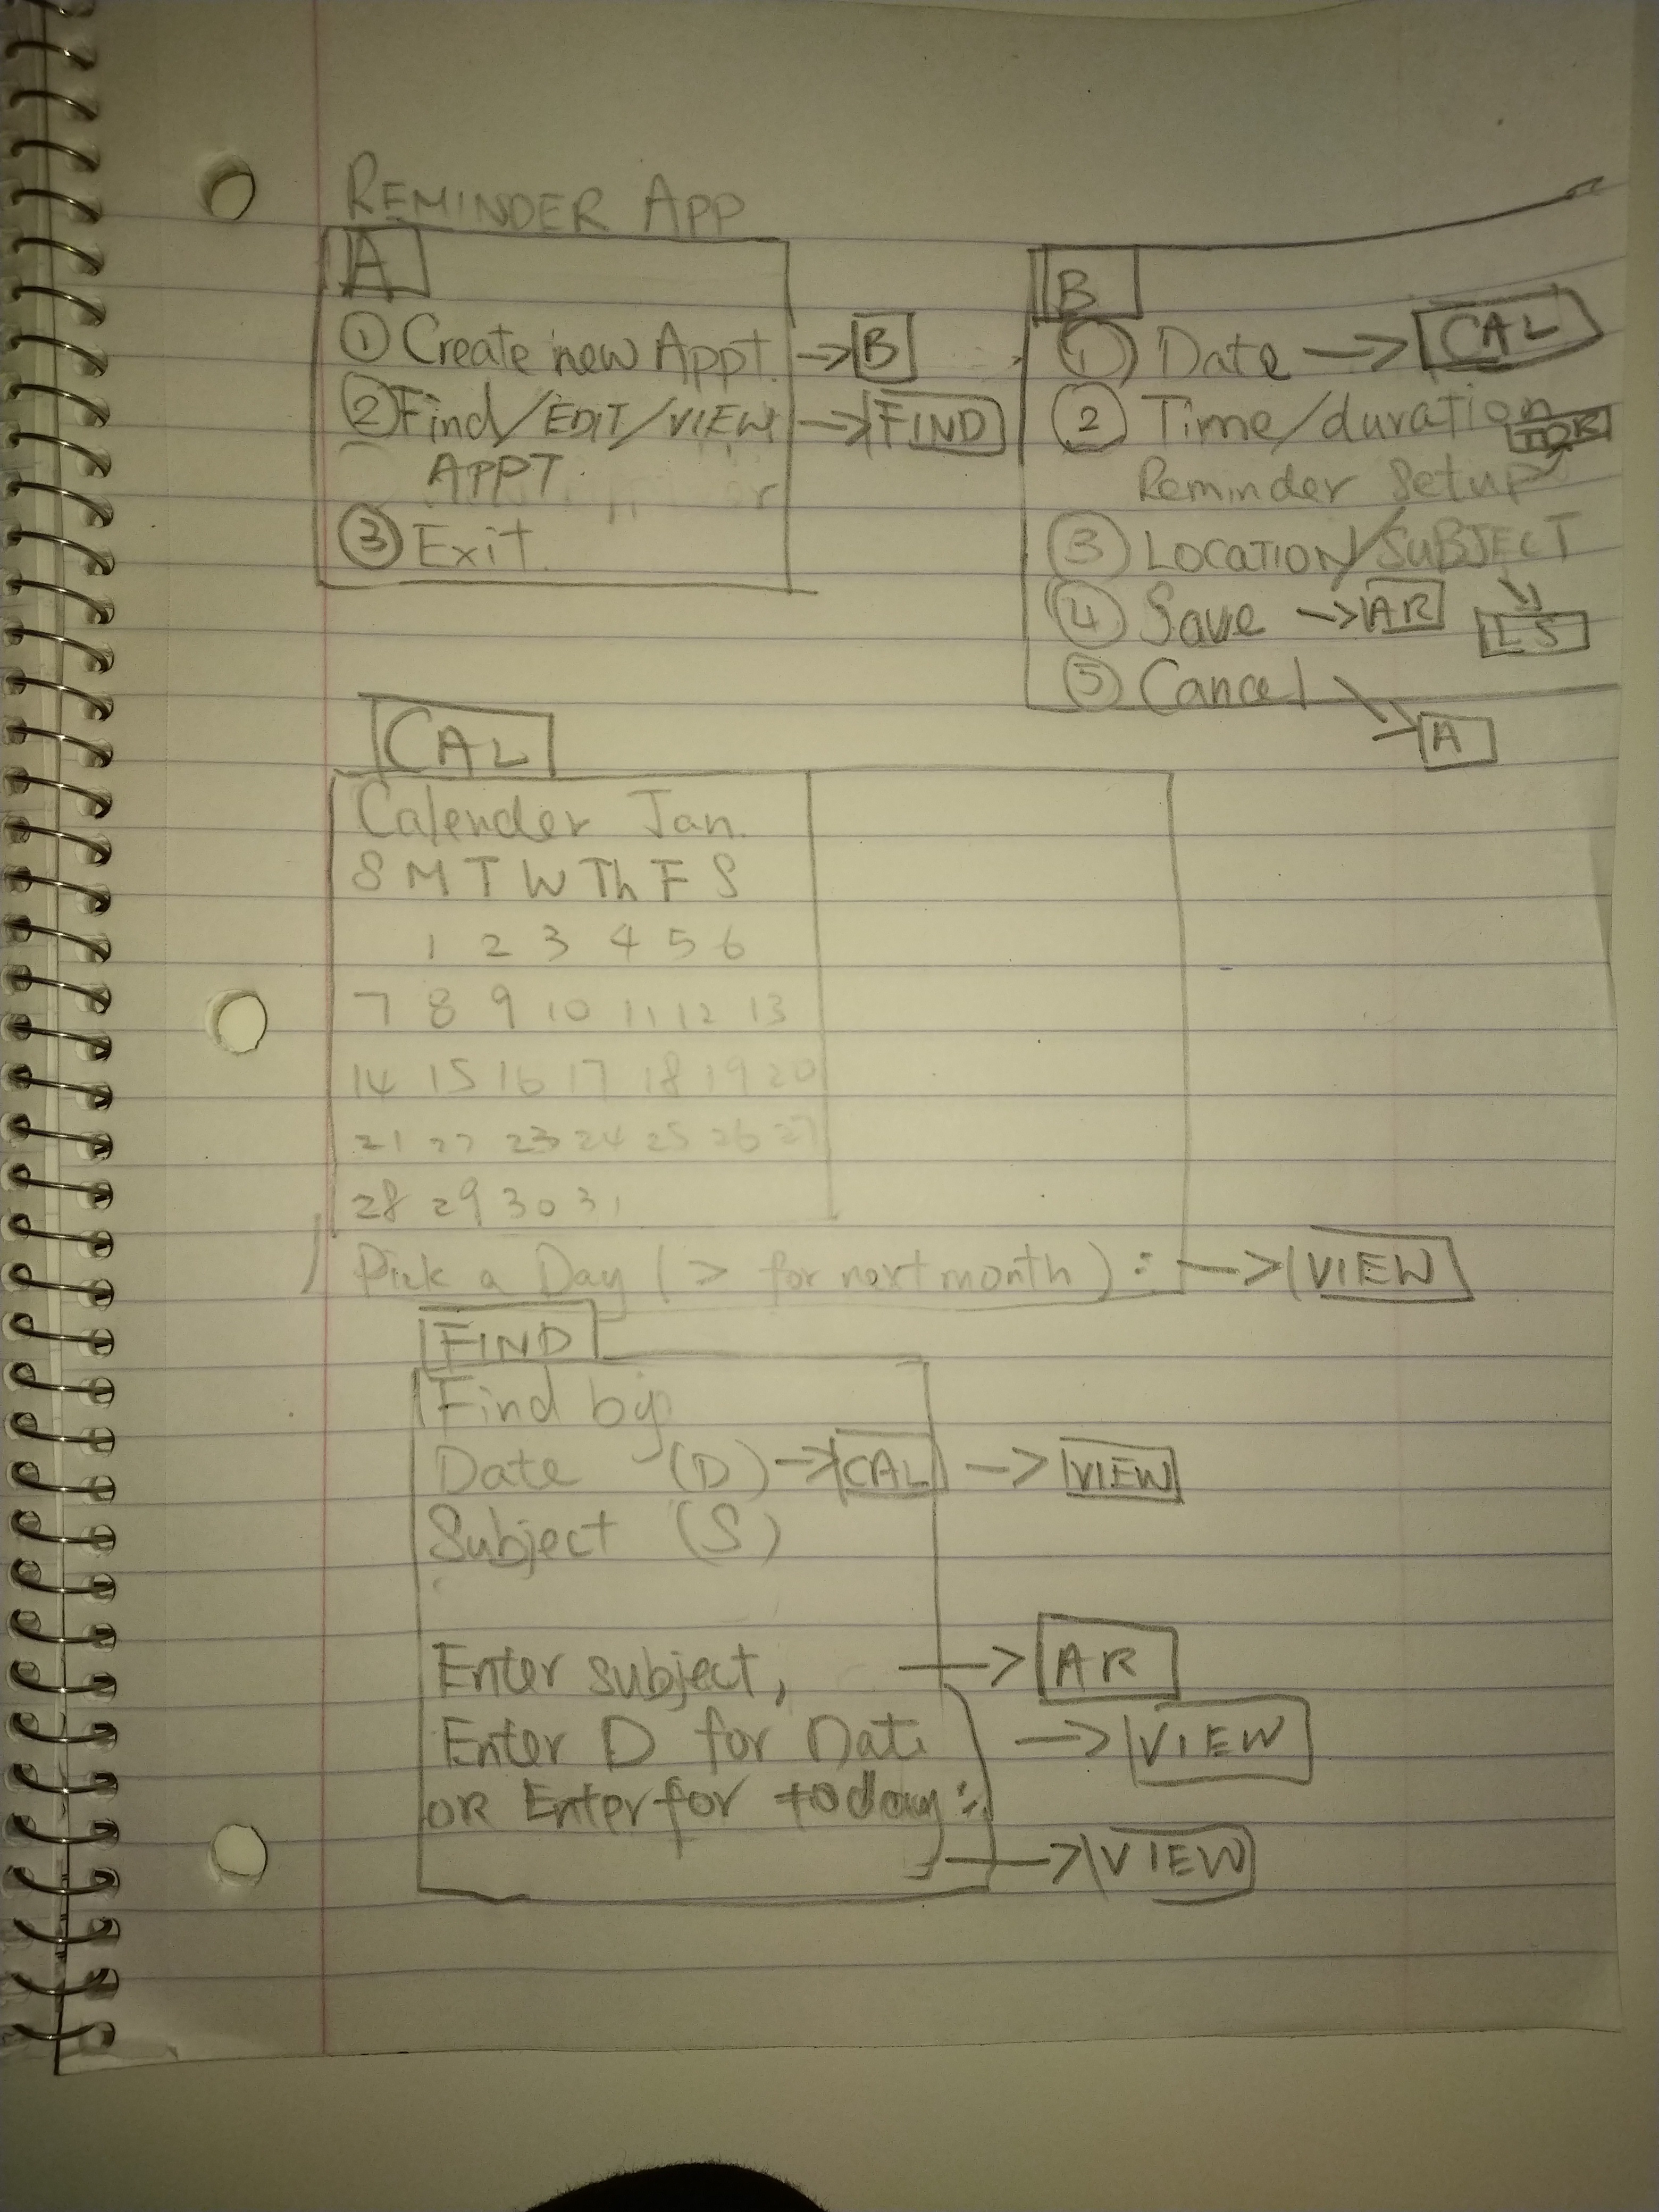 REMINDER APP
A
① Create new Appt. → B
② Find/EDIT/VIEW → FIND
APPT.
③ Exit
B
① Date → CAL
② Time/duration TDR
Reminder Setup
③ LOCATION/SUBJECT
④ Save → AR
ES
⑤ Cancel → A
CAL
Calender Jan.
S M T W Th F S
1 2 3 4 5 6
7 8 9 10 11 12 13
14 15 16 17 18 19 20
21 22 23 24 25 26 27
28 29 30 31
Pick a Day ( > for next month ) : → VIEW
FIND
Find by
Date (D) → CAL → VIEW
Subject (S)
Enter subject, → AR
Enter D for Date → VIEW
OR Enter for today : → VIEW